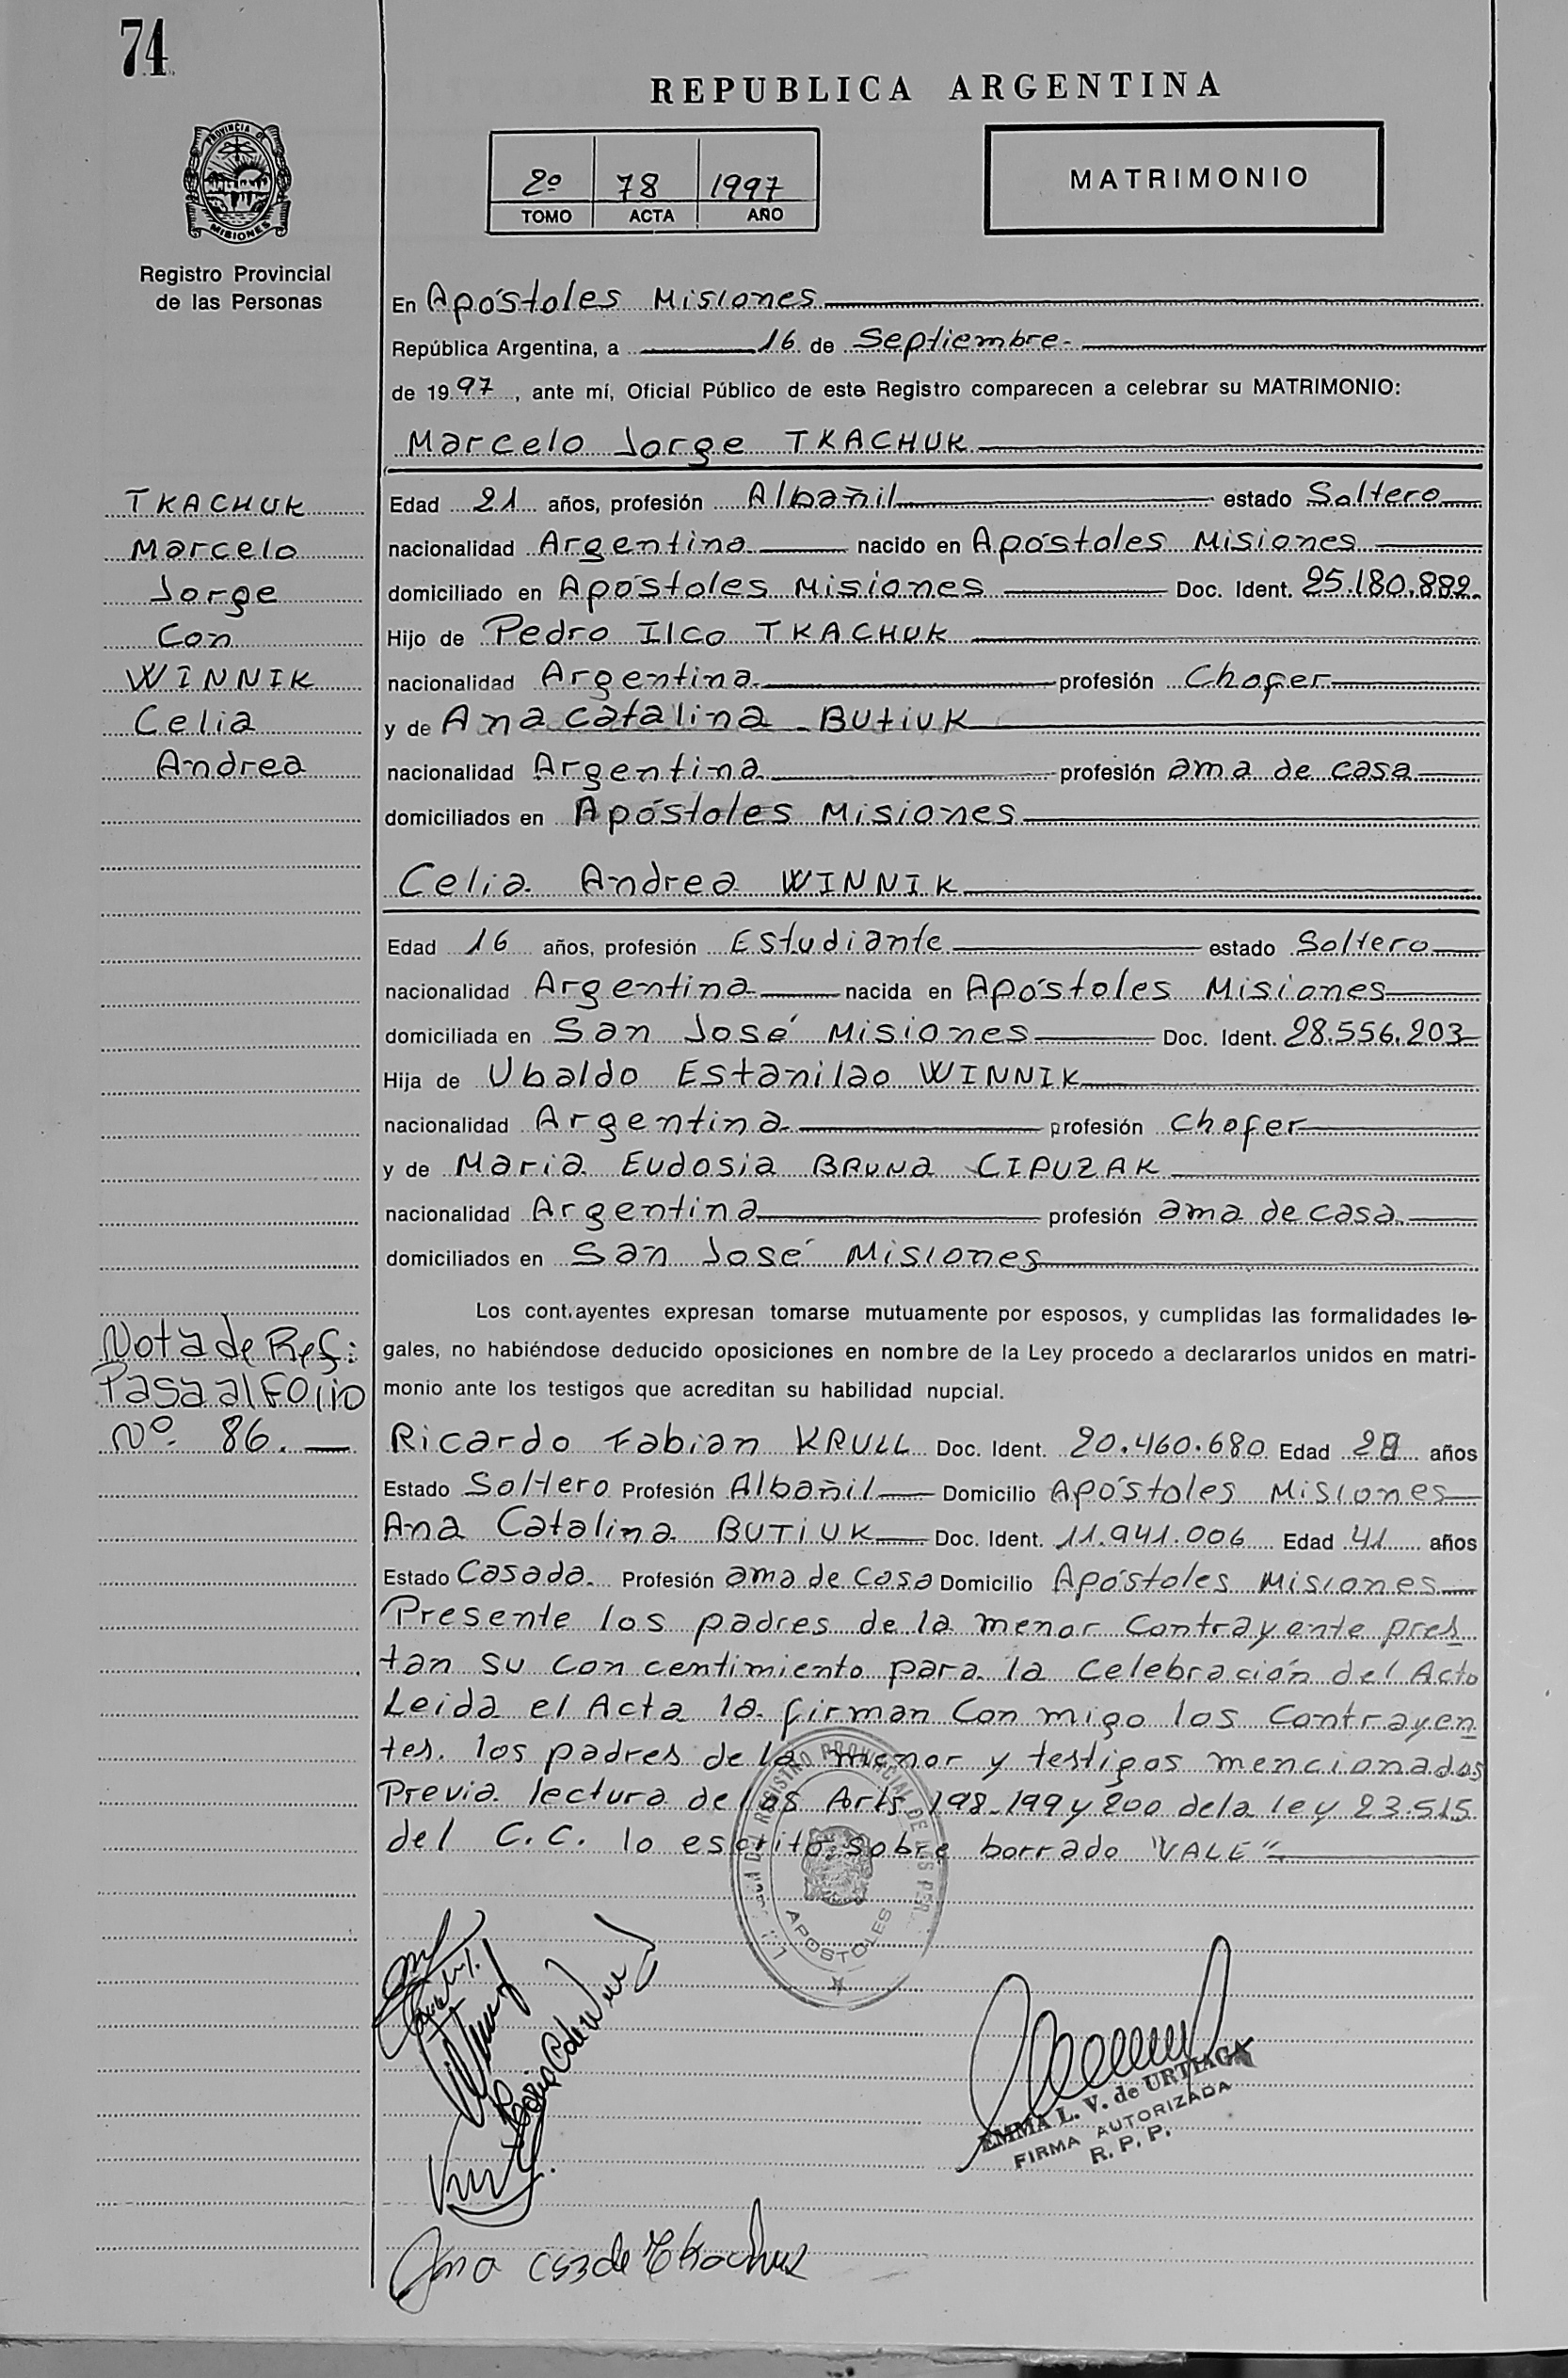 74
REPUBLICA ARGENTINA
PROVINCIA DE
MISIONES
2º 78 1997
TOMO ACTA AÑO
MATRIMONIO
Registro Provincial
de las Personas
En Apóstoles Misiones
República Argentina, a 16 de Septiembre
de 1997, ante mí, Oficial Público de este Registro comparecen a celebrar su MATRIMONIO:
Marcelo Jorge TKACHUK
TKACHUK
Marcelo
Jorge
Con
WINNIK
Celia
Andrea
Edad 21 años, profesión Albañil estado Soltero
nacionalidad Argentina nacido en Apóstoles Misiones
domiciliado en Apóstoles Misiones Doc. Ident. 25.180.882
Hijo de Pedro Ilco TKACHUK
nacionalidad Argentina profesión Chofer
y de Ana Catalina BUtiUK
nacionalidad Argentina profesión ama de casa
domiciliados en Apóstoles Misiones
Celia Andrea WINNIK
Edad 16 años, profesión Estudiante estado Soltero
nacionalidad Argentina nacida en Apóstoles Misiones
domiciliada en San José Misiones Doc. Ident. 28.556.203
Hija de Ubaldo Estanilao WINNIK
nacionalidad Argentina profesión Chofer
y de Maria Eudosia BRUNA CIPUZAK
nacionalidad Argentina profesión ama de casa
domiciliados en San José Misiones
Los cont.ayentes expresan tomarse mutuamente por esposos, y cumplidas las formalidades le-
gales, no habiéndose deducido oposiciones en nombre de la Ley procedo a declararlos unidos en matri-
monio ante los testigos que acreditan su habilidad nupcial.
Nota de Ref:
Pasa al Folio
Nº 86.
Ricardo Fabian KRULL Doc. Ident. 20.460.680 Edad 28 años
Estado Soltero Profesión Albañil Domicilio Apóstoles Misiones
Ana Catalina BUTIUK Doc. Ident. 11.941.006 Edad 41 años
Estado Casada Profesión ama de casa Domicilio Apóstoles Misiones
Presente los padres de la menor Contrayente pres
tan su con centimiento para la Celebración del Acto
Leida el Acta la firman Con migo los Contrayen
tes. los padres de la menor y testigos mencionados
Previa lectura de los Arts 198-199 y 200 de la ley 23.515
del C.C. lo escrito sobre borrado "VALE"
REGISTRO PROVINCIAL DE LAS PER
APOSTOLES
EMMA L. V. de URTIAGA
FIRMA AUTORIZADA
R. P. P.
Ana de Tkachuk